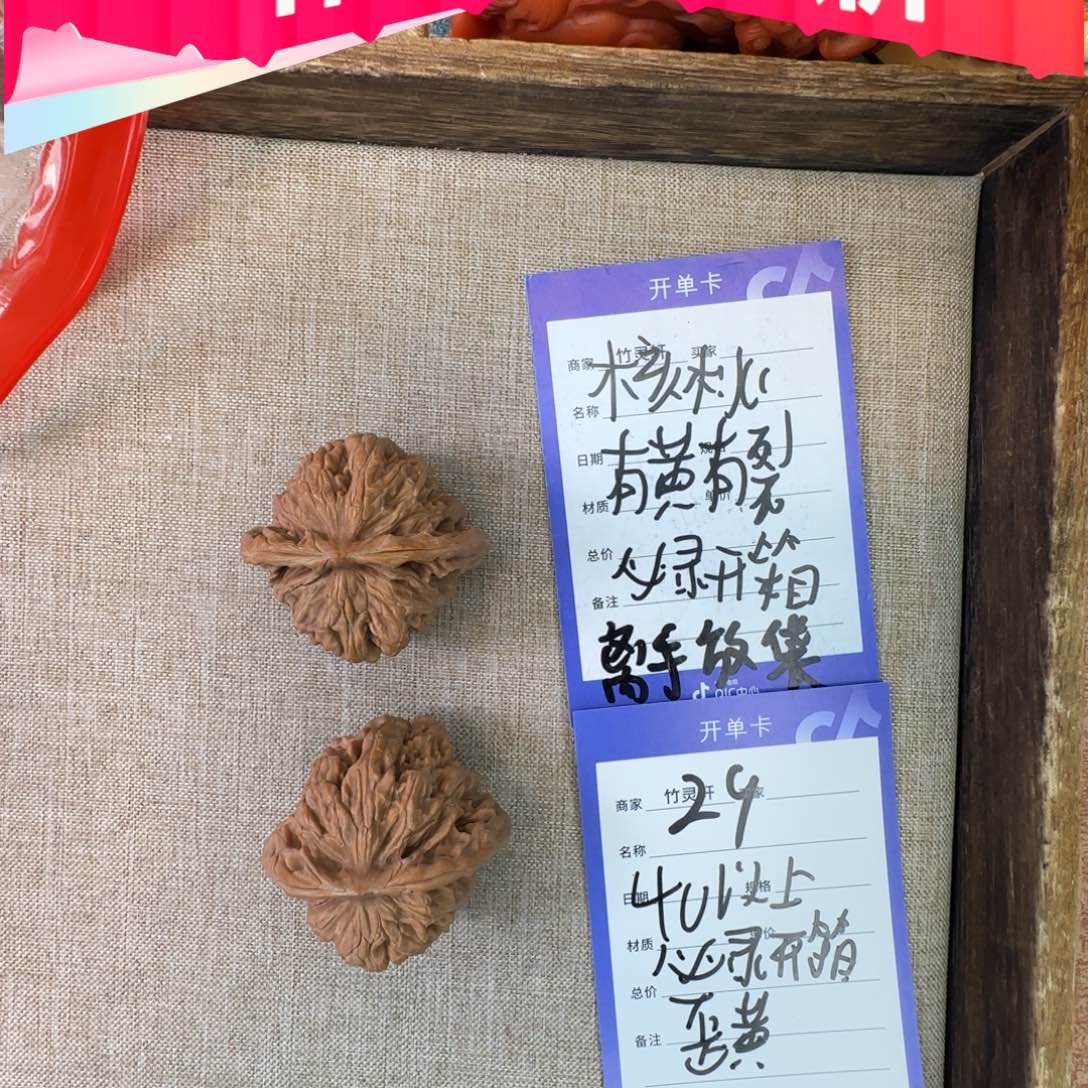 开单卡
商家 竹灵轩 买家
核桃
名称
日期
有黄有裂
材质
总价
必录开箱
备注
离手勿集
开单卡
商家 竹灵轩
29
名称
日期 规格
40以上
材质
必录开箱
总价
备注